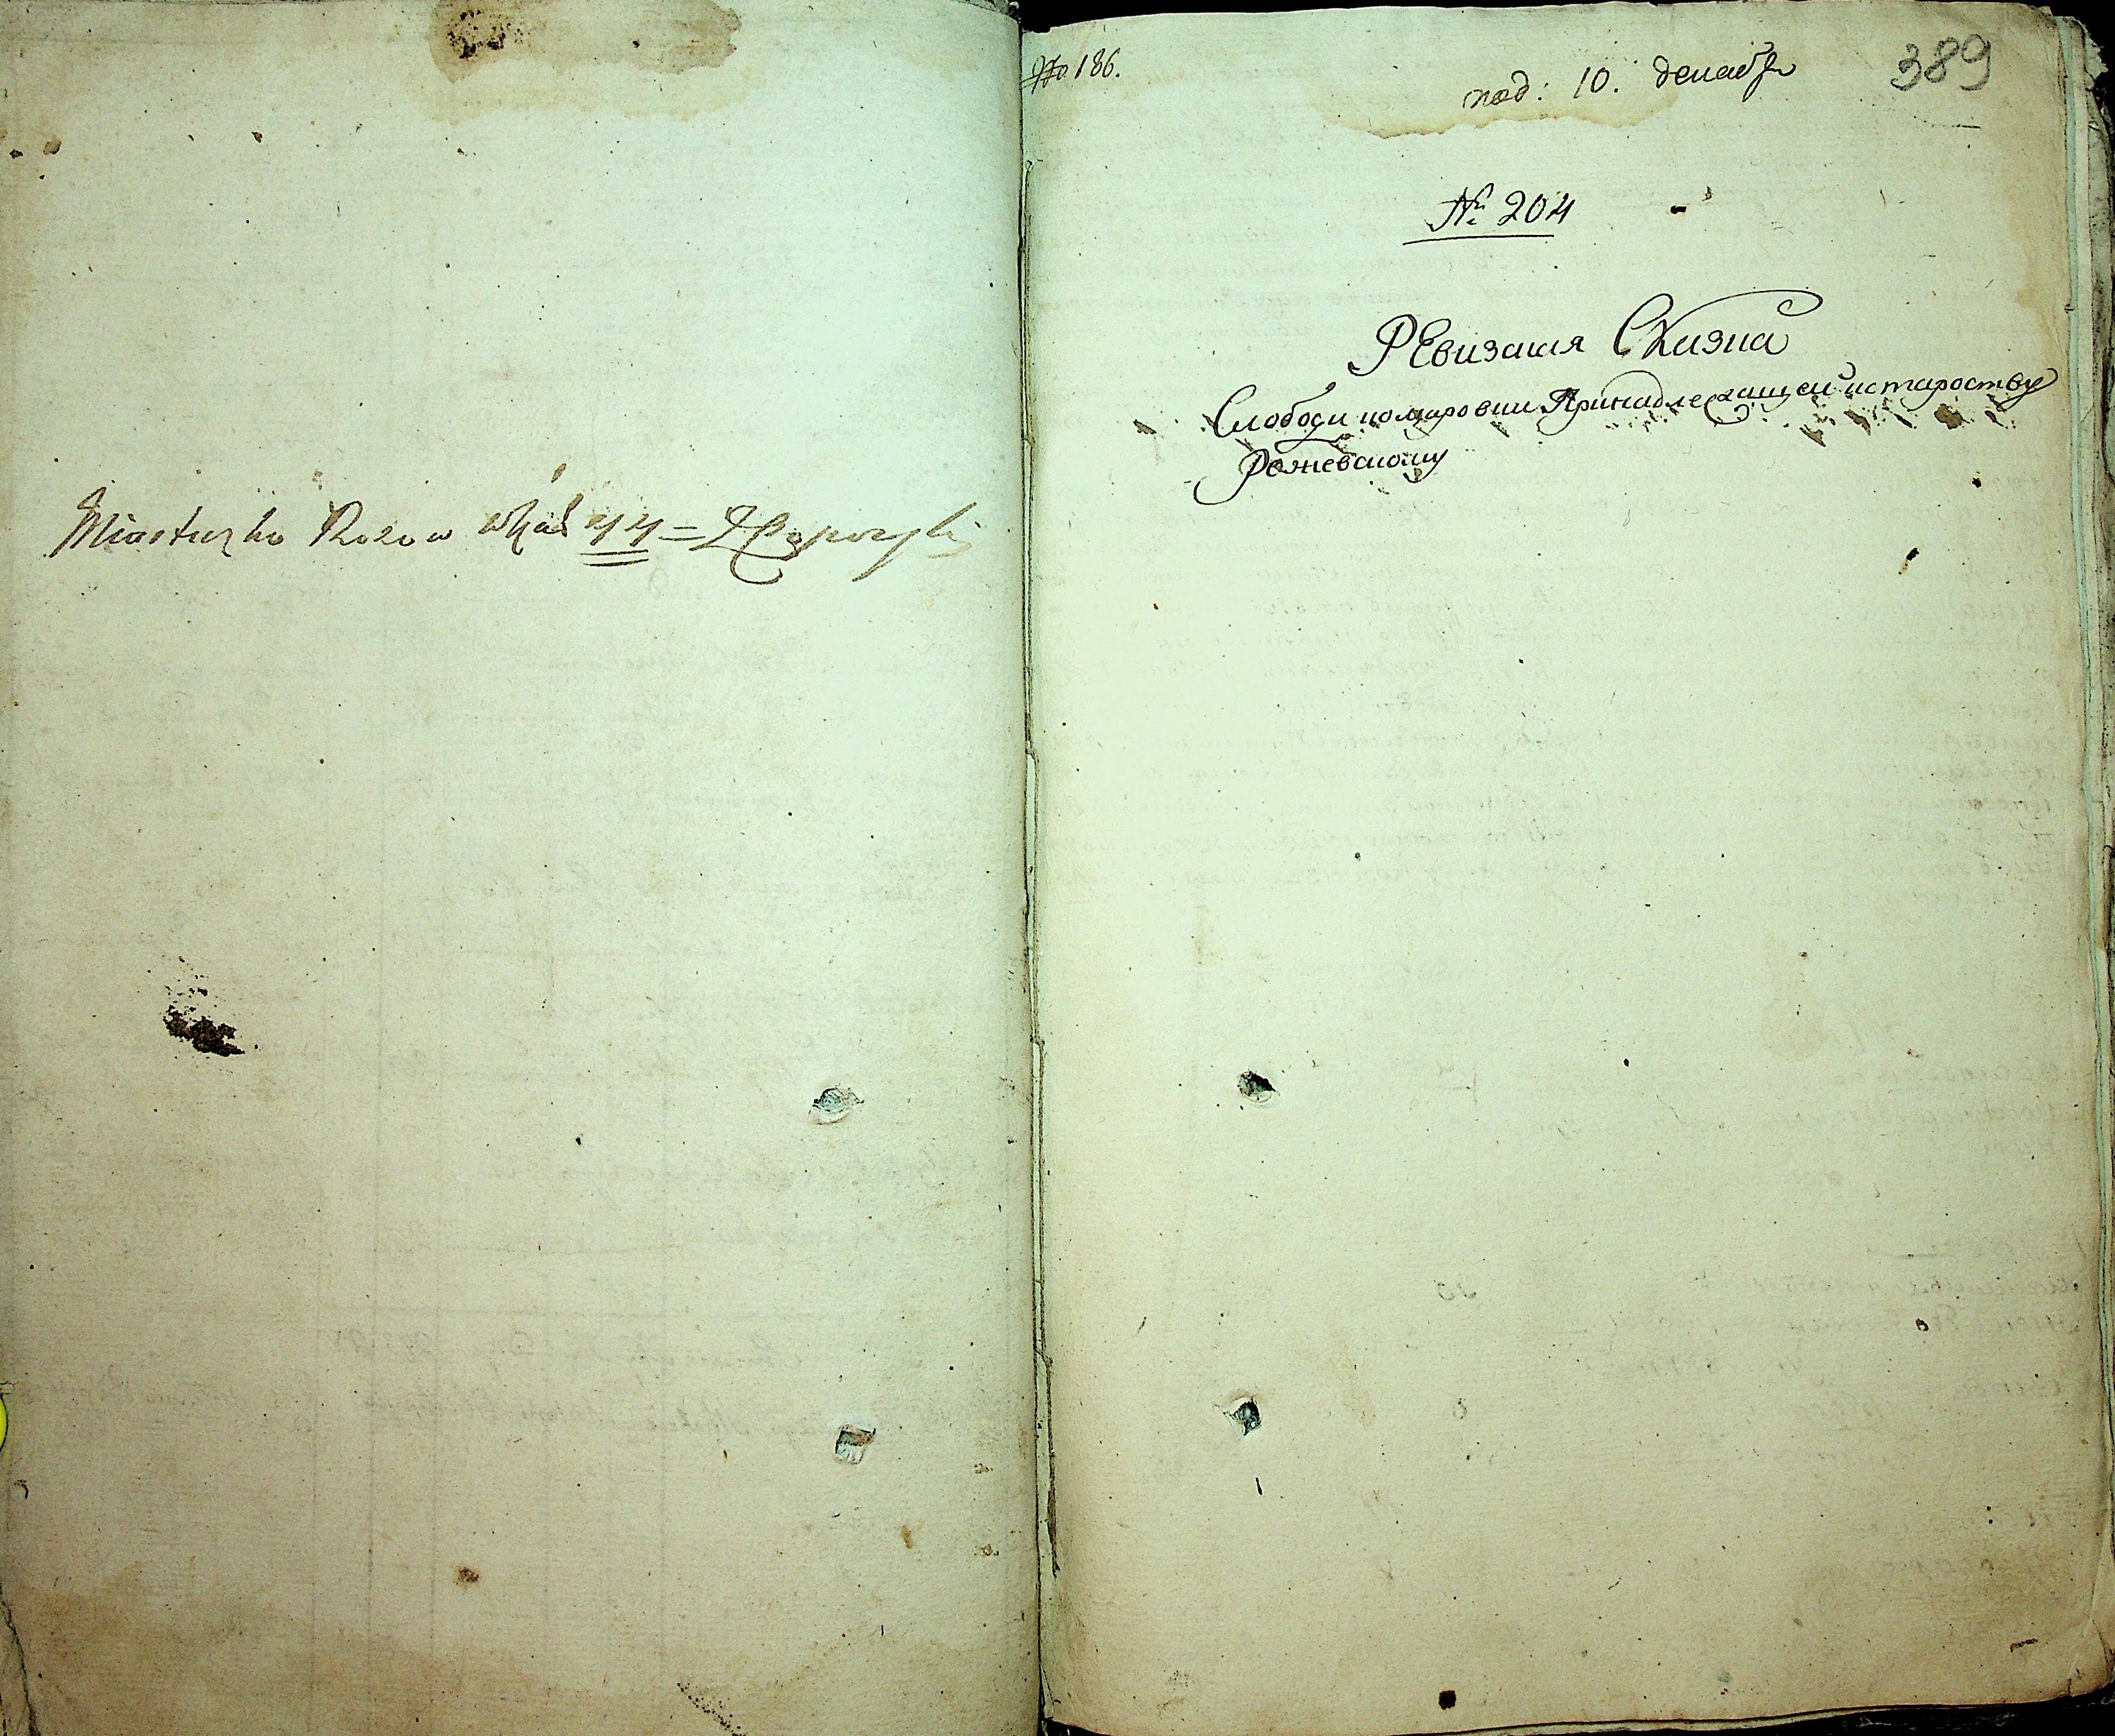 Miasteczko Rozow
№ 186.
под: 10. декабр
389
№ 204
РЕвизская СКазка
Слободи комаровки Принадлежащей к староству
Рожевскому